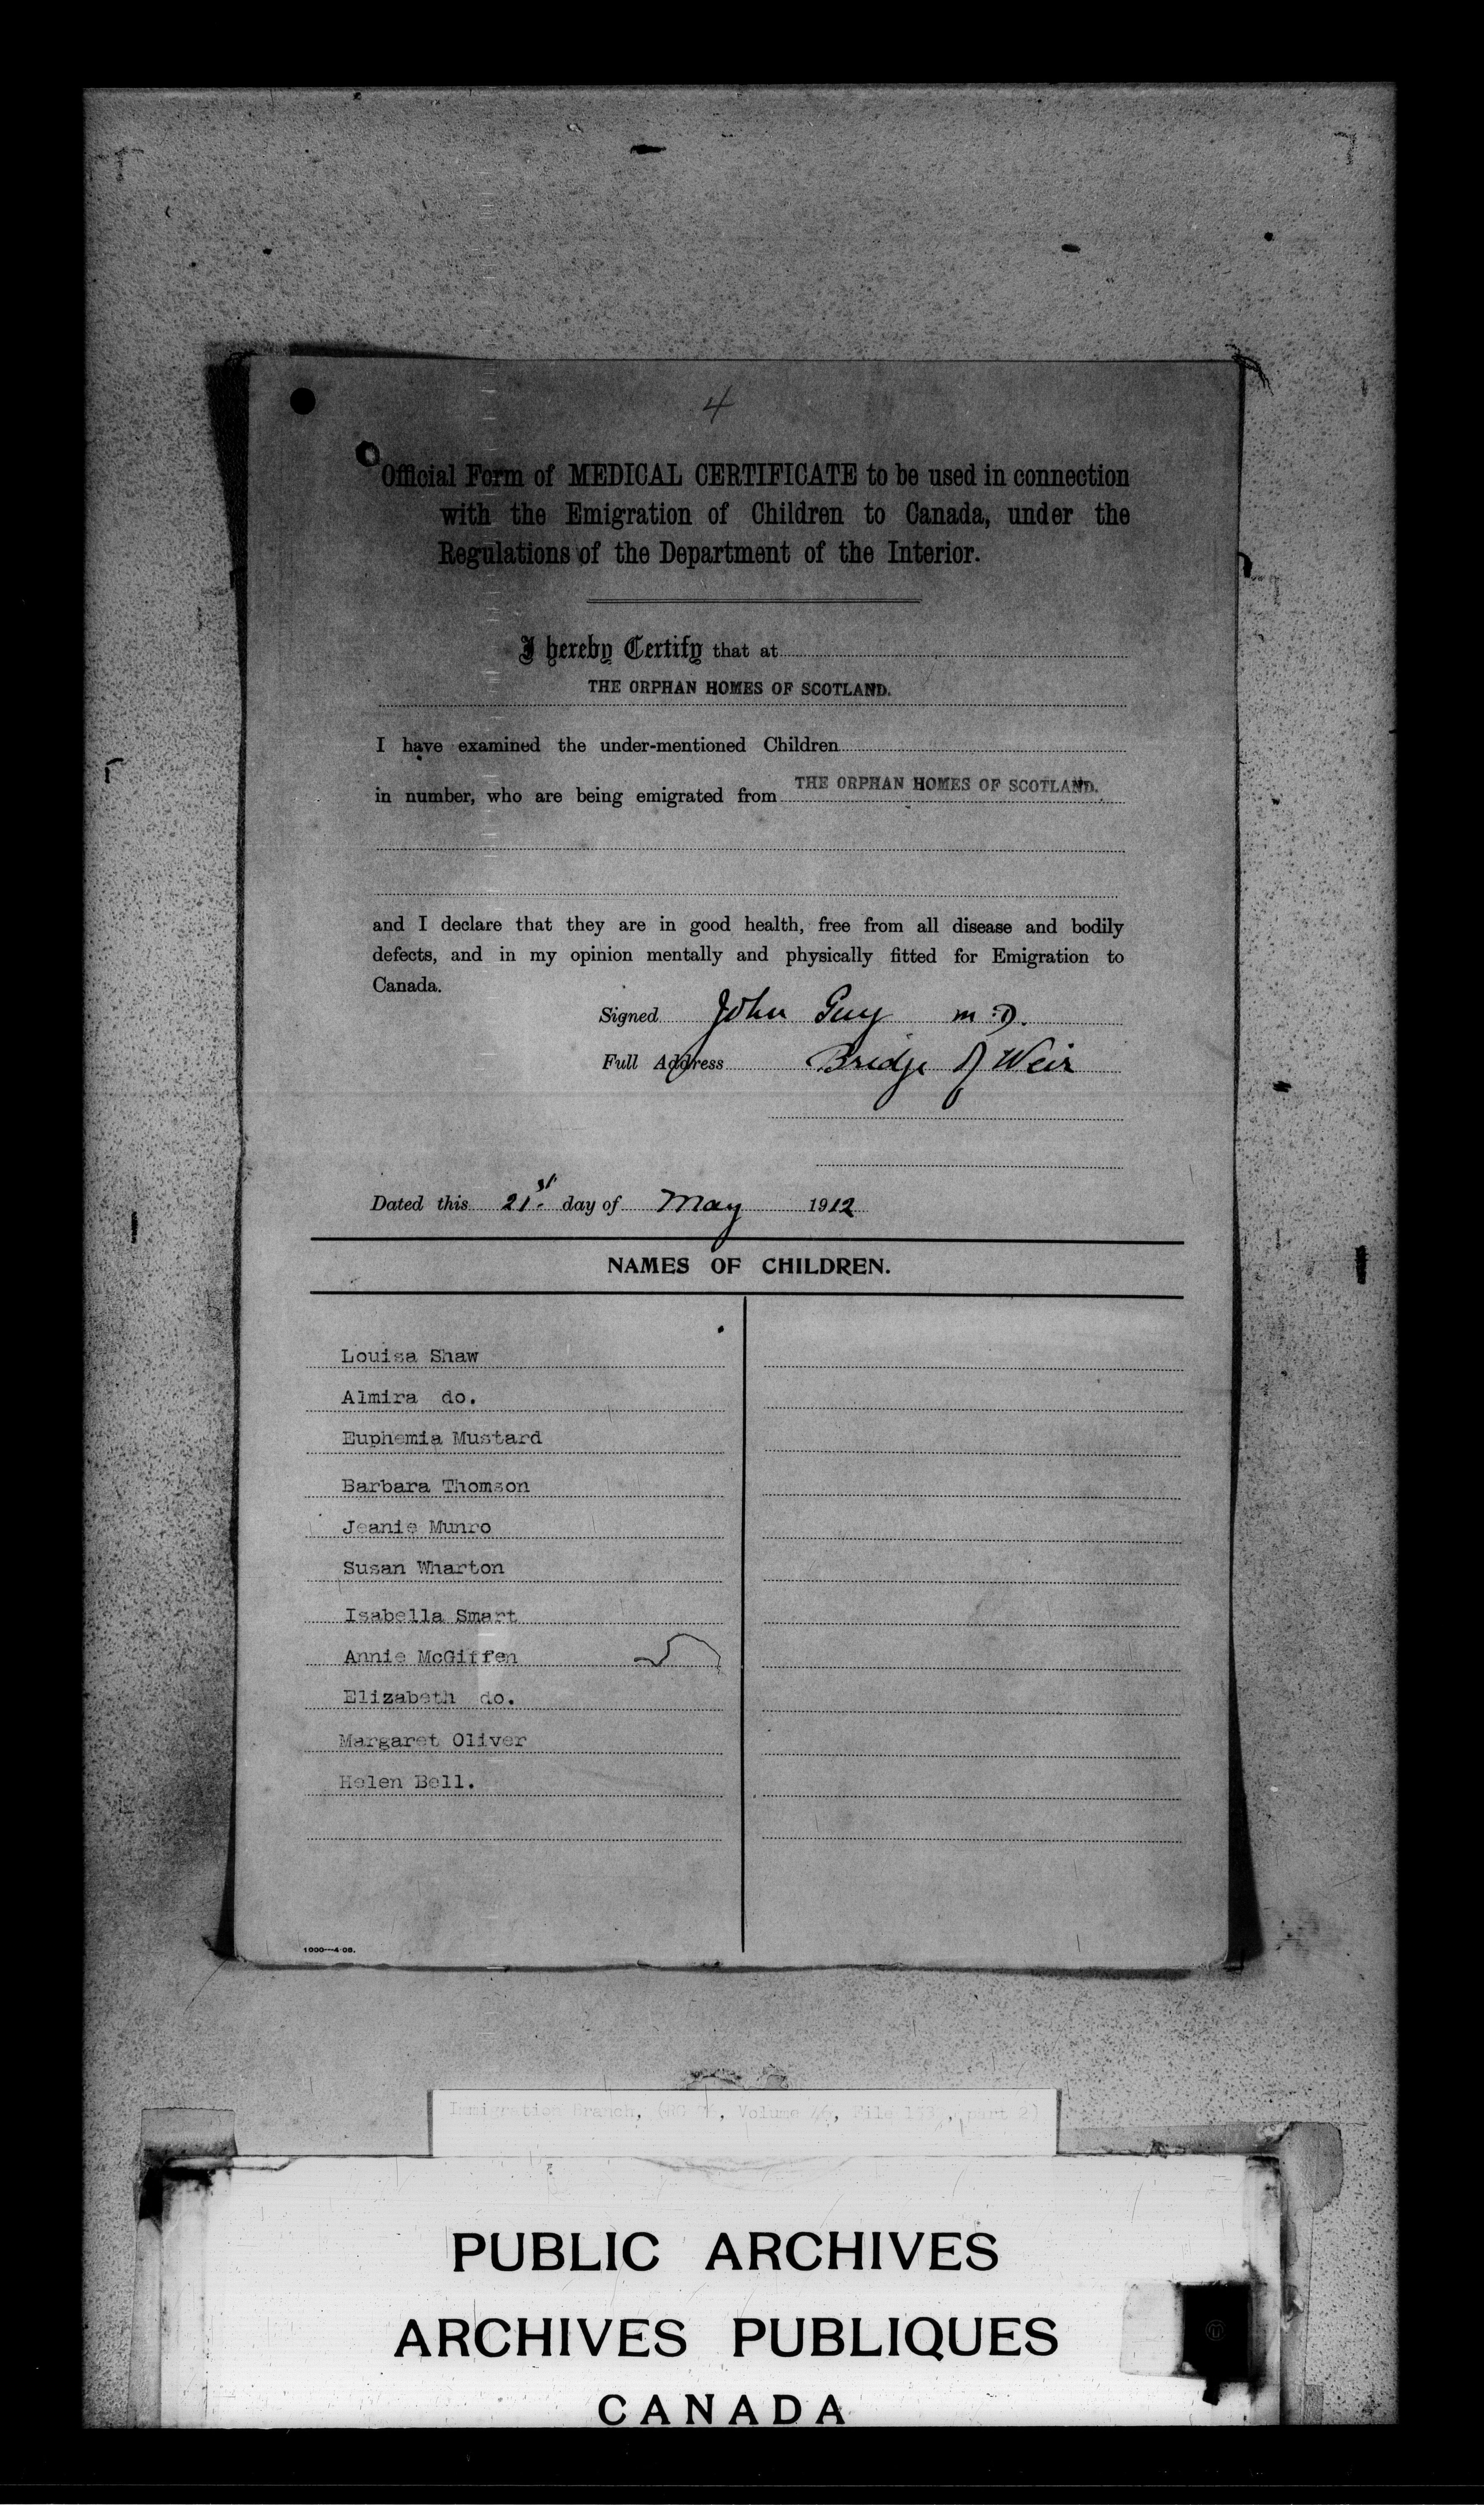 4
Official Form of MEDICAL CERTIFICATE to be used in connection
with the Emigration of Children to Canada, under the
Regulations of the Department of the Interior.
I hereby Certify that at
THE ORPHAN HOMES OF SCOTLAND.
I have examined the under-mentioned Children
in number, who are being emigrated from THE ORPHAN HOMES OF SCOTLAND.
and I declare that they are in good health, free from all disease and bodily
defects, and in my opinion mentally and physically fitted for Emigration to
Canada.
Signed John Guy M.D.
Full Address Bridge of Weir
Dated this 21st. day of May 1912
NAMES OF CHILDREN.
Louisa Shaw
Almira do.
Euphemia Mustard
Barbara Thomson
Jeanie Munro
Susan Wharton
Isabella Smart
Annie McGiffen
Elizabeth do.
Margaret Oliver
Helen Bell.
1000—4·08.
Immigration Branch, (RG Volume File part 2)
PUBLIC ARCHIVES
ARCHIVES PUBLIQUES
CANADA